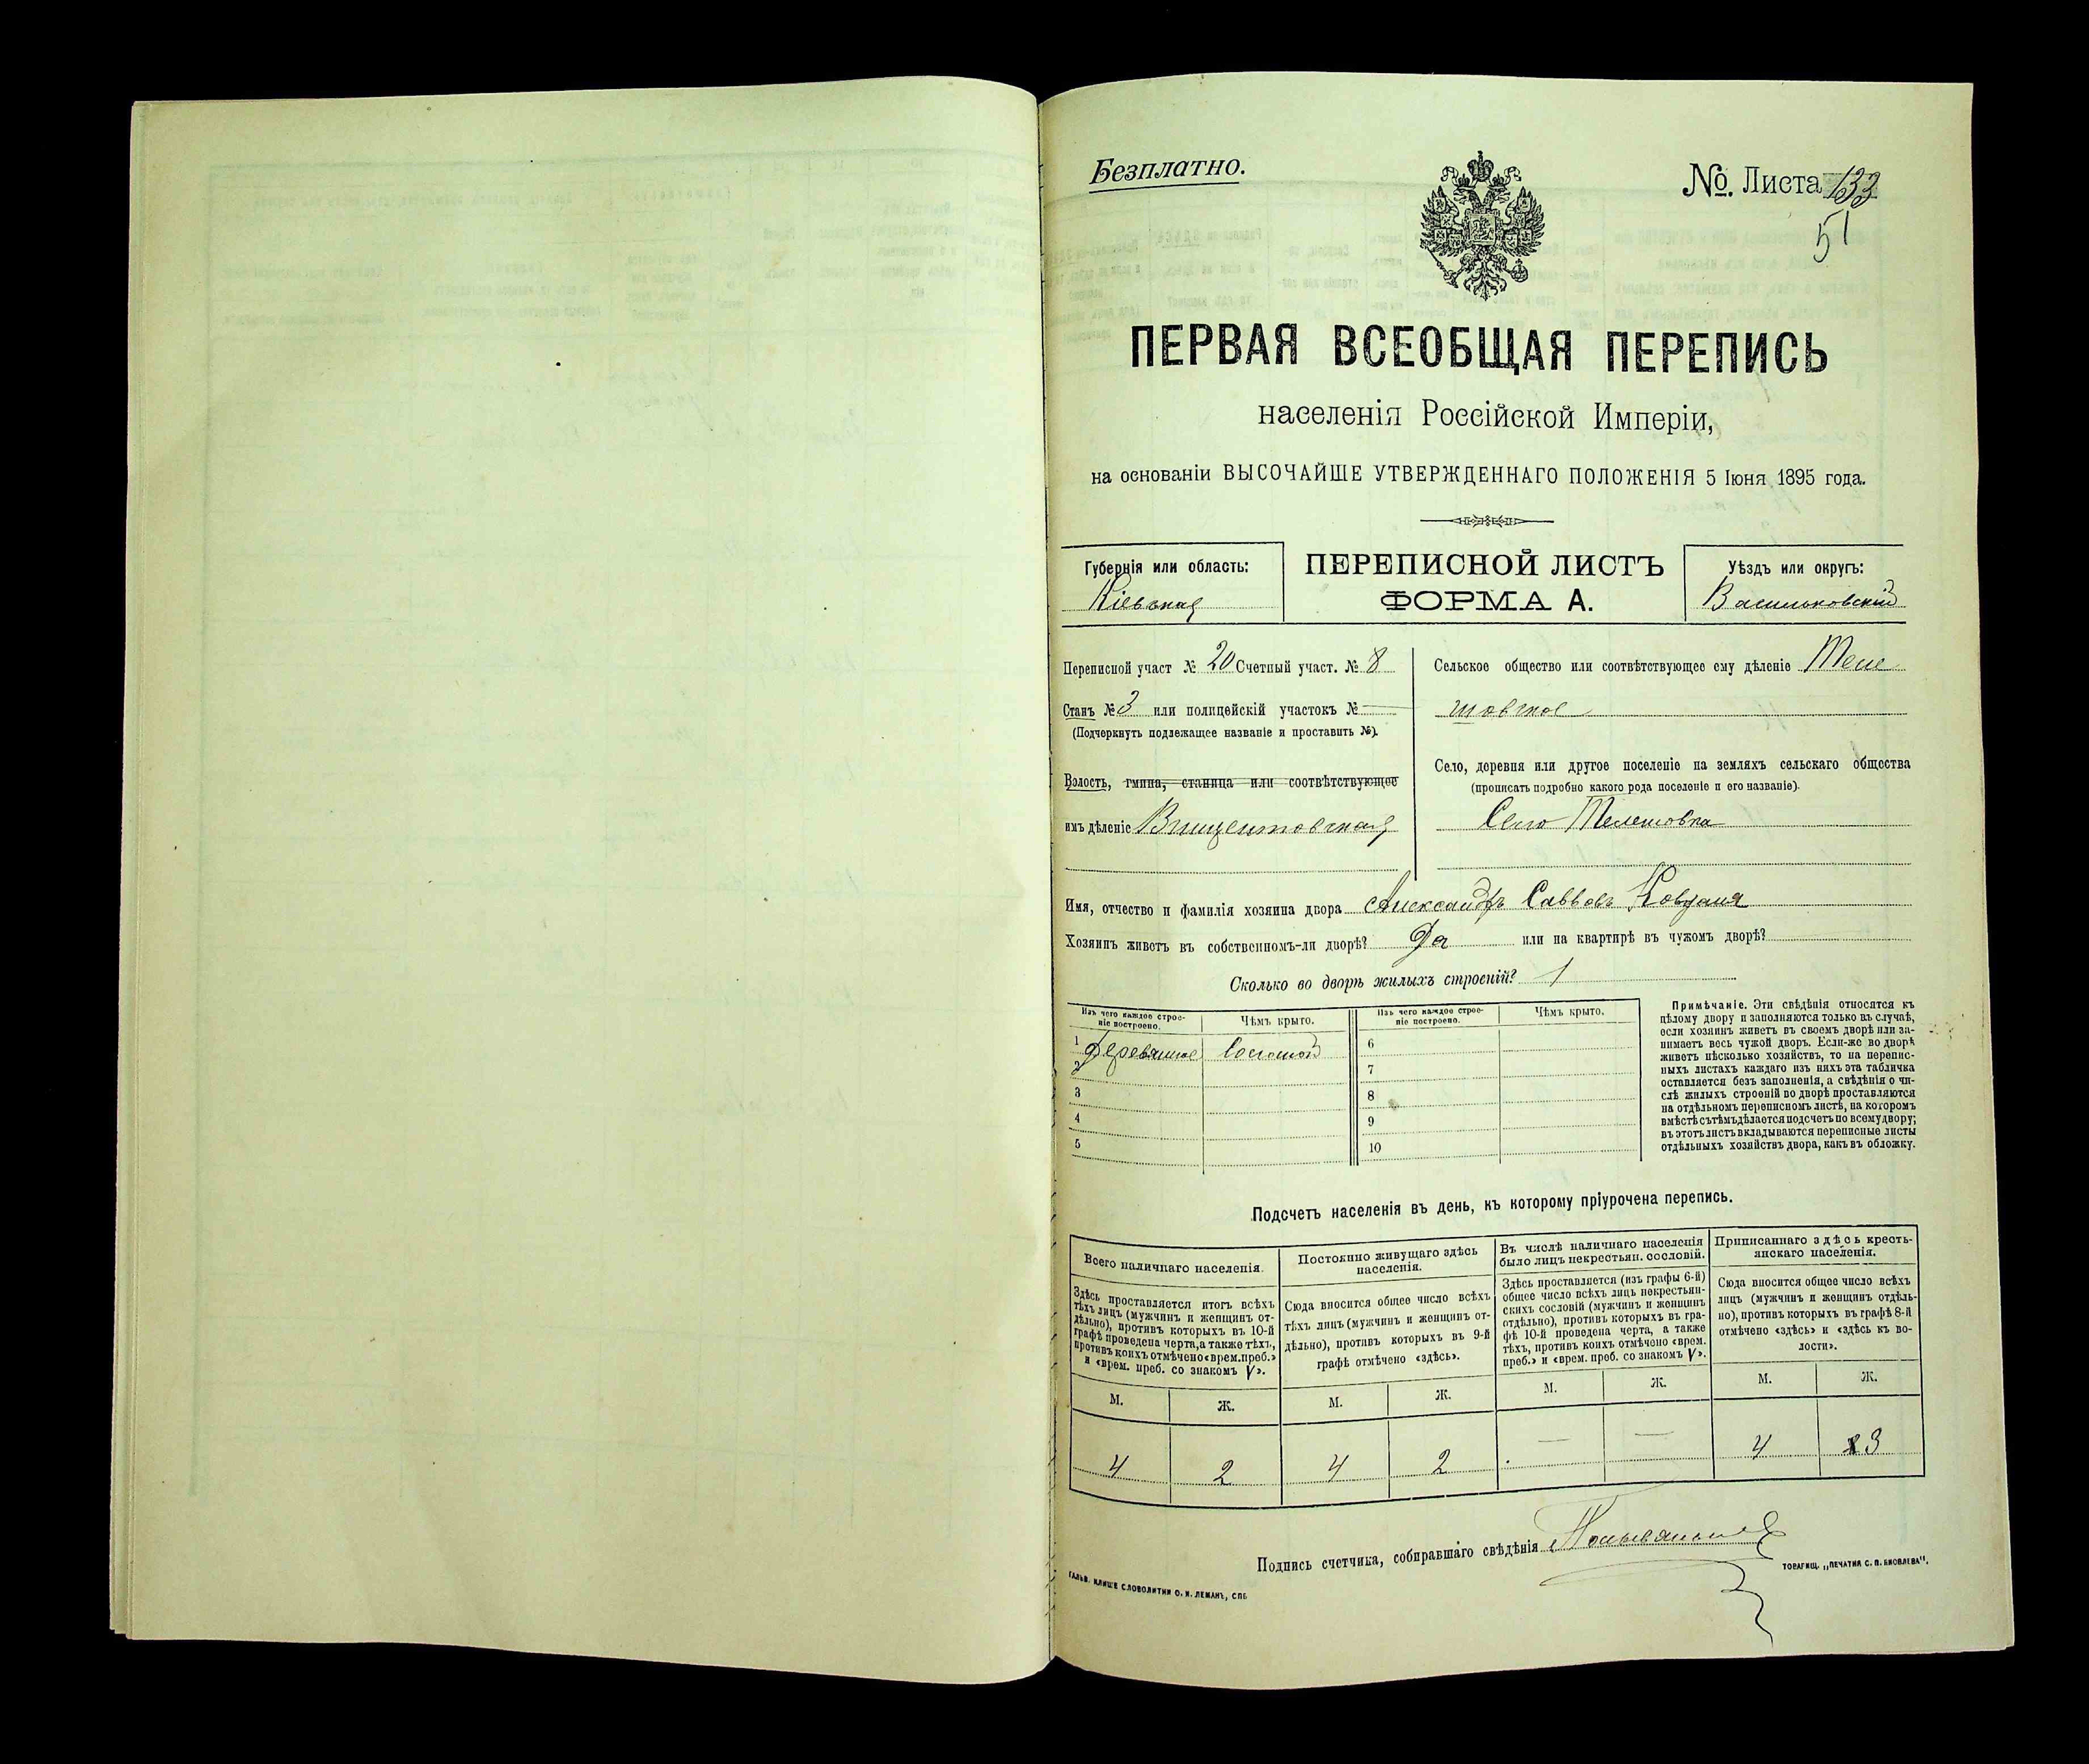 Безплатно.
№ Листа 133
51
ПЕРВАЯ ВСЕОБЩАЯ ПЕРЕПИСЬ
населенія Россійской Имперіи,
на основаніи ВЫСОЧАЙШЕ УТВЕРЖДЕННАГО ПОЛОЖЕНІЯ 5 Іюня 1895 года.
Губернія или область:
Кіевская
ПЕРЕПИСНОЙ ЛИСТЪ
ФОРМА А.
Уѣздъ или округъ:
Васильковскій
Переписной участ № 20 Счетный участ. № 8
Станъ № 3 или полицейскій участокъ № —
(Подчеркнуть подлежащее названіе и проставить №).
Волость, гмина, станица или соотвѣтствующее
имъ дѣленіе Винцентовская
Сельское общество или соотвѣтствующее ему дѣленіе Теле
шовское
Село, деревня или другое поселеніе на земляхъ сельскаго общества
(прописать подробно какого рода поселеніе и его названіе).
Село Телешовка
Имя, отчество и фамилія хозяина двора Александръ Саввовъ
Хозяинъ живетъ въ собственномъ-ли дворѣ? Да или на квартирѣ въ чужомъ дворѣ?
Сколько во дворѣ жилыхъ строеній? 1
Изъ чего каждое строе-
ніе построено.
Чѣмъ крыто.
Изъ чего каждое строе-
ніе построено.
Чѣмъ крыто.
1 Деревянное Соломой 6
2 7
3 8
4 9
5 10
Примѣчаніе. Эти свѣдѣнія относятся къ
цѣлому двору и заполняются только въ случаѣ,
если хозяинъ живетъ въ своемъ дворѣ или за-
нимаетъ весь чужой дворъ. Если-же во дворѣ
живетъ нѣсколько хозяйствъ, то на перепис-
ныхъ листахъ каждаго изъ нихъ эта табличка
оставляется безъ заполненія, а свѣдѣнія о чи-
слѣ жилыхъ строеній во дворѣ проставляются
на отдѣльномъ переписномъ листѣ, на которомъ
вмѣстѣ съ тѣмъ дѣлается подсчетъ по всему двору;
въ этотъ листъ вкладываются переписные листы
отдѣльныхъ хозяйствъ двора, какъ въ обложку.
Подсчетъ населенія въ день, къ которому пріурочена перепись.
Всего наличнаго населенія.
Здѣсь проставляется итогъ всѣхъ
тѣхъ лицъ (мужчинъ и женщинъ от-
дѣльно), противъ которыхъ въ 10-й
графѣ проведена черта, а также тѣхъ,
противъ коихъ отмѣчено «врем. преб.»
и «врем. преб. со знакомъ V».
Постоянно живущаго здѣсь
населенія.
Сюда вносится общее число всѣхъ
тѣхъ лицъ (мужчинъ и женщинъ от-
дѣльно), противъ которыхъ въ 9-й
графѣ отмѣчено «здѣсь».
Въ числѣ наличнаго населенія
было лицъ некрестьян. сословій.
Здѣсь проставляется (изъ графы 6-й)
общее число всѣхъ лицъ некрестьян-
скихъ сословій (мужчинъ и женщинъ
отдѣльно), противъ которыхъ въ гра-
фѣ 10-й проведена черта, а также
тѣхъ, противъ коихъ отмѣчено «врем.
преб.» и «врем. преб. со знакомъ V».
Приписаннаго здѣсь кресть-
янскаго населенія.
Сюда вносится общее число всѣхъ
лицъ (мужчинъ и женщинъ отдѣль-
но), противъ которыхъ въ графѣ 8-й
отмѣчено «здѣсь» и «здѣсь къ во-
лости».
М. Ж. М. Ж. М. Ж. М. Ж.
4 2 4 2 — — 4 3
Подпись счетчика, собиравшаго свѣдѣнія
ГАЛЬВ. КЛИШЕ СЛОВОЛИТНИ О. И. ЛЕМАНЪ, СПБ.
ТОВАРИЩ. „ПЕЧАТНЯ С. П. ЯКОВЛЕВА".